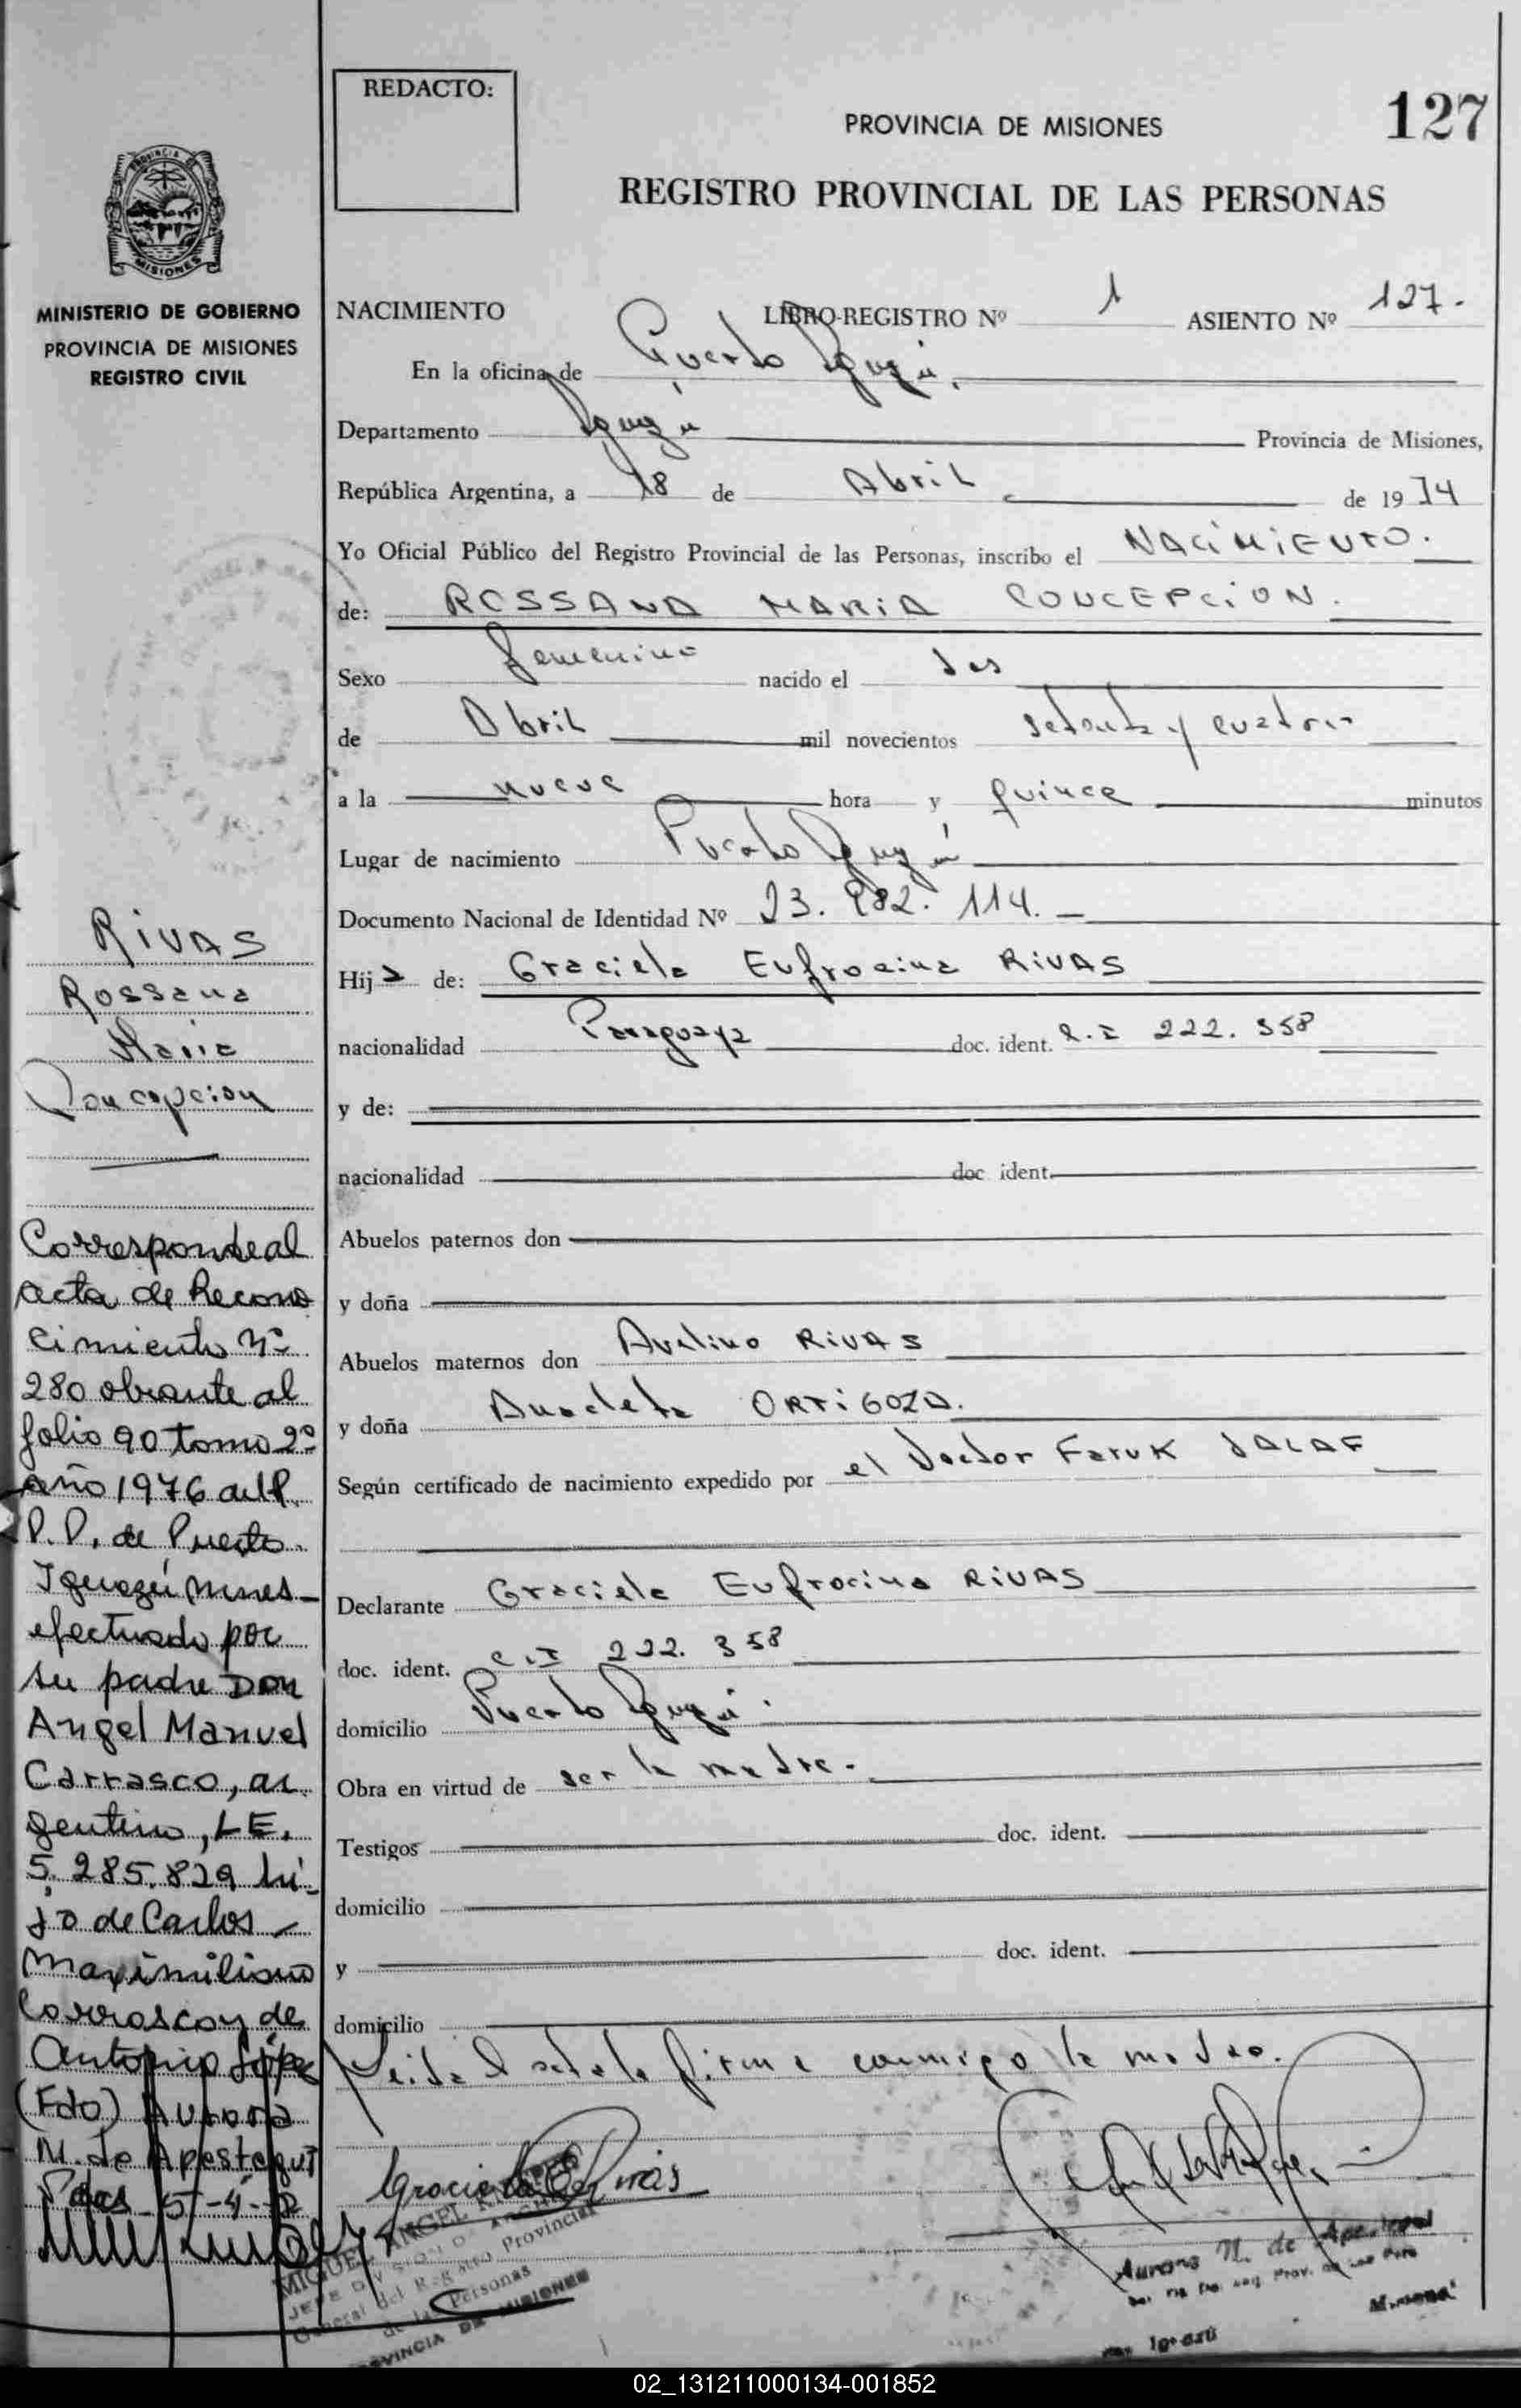 REDACTO:
127
PROVINCIA DE MISIONES
REGISTRO PROVINCIAL DE LAS PERSONAS
PROVINCIA DE
MISIONES
MINISTERIO DE GOBIERNO
PROVINCIA DE MISIONES
REGISTRO CIVIL
NACIMIENTO LIBRO-REGISTRO Nº 1 ASIENTO Nº 127.
En la oficina de Puerto Iguazú.
Departamento Iguazú Provincia de Misiones,
República Argentina, a 18 de Abril de 1974
Yo Oficial Público del Registro Provincial de las Personas, inscribo el NACIMIENTO.
de: ROSSANA MARIA CONCEPCION.
Sexo femenino nacido el dos
de Abril mil novecientos setenta y cuatro
a la nueve hora y quince minutos
Lugar de nacimiento Puerto Iguazú
Documento Nacional de Identidad Nº 23.982.114.
Hija de: Graciela Eufrocina RIVAS
nacionalidad Paraguaya doc. ident. C.I 222.358
y de:
nacionalidad doc ident.
Abuelos paternos don
y doña
Abuelos maternos don Avelino RIVAS
y doña Anacleta ORTIGOZA.
Según certificado de nacimiento expedido por el Doctor Faruk JALAF
Declarante Graciela Eufrocina RIVAS
doc. ident. C.I 222.358
domicilio Puerto Iguazú.
Obra en virtud de ser la madre.
Testigos doc. ident.
domicilio
y doc. ident.
domicilio
Leida el acta la firma conmigo la madre.
Graciela E Rivas
RIVAS
Rossana
Maria
Concepcion
Corresponde al
acta de Recono
cimiento Nº
280 obrante al
folio 90 tomo 2º
año 1976 del R.
P.P. de Puerto
Iguazú Mnes-
efectuado por
su padre Don
Angel Manuel
Carrasco, ar
gentino, L.E.
5.285.829 hi-
jo de Carlos
Maximiliano
Carrasco y de
Antonia López
(Fdo) Aurora
M. de Apestegui
Pdas 5-4-
MIGUEL ANGEL
JEFE DIVISION ARCHIVO
General del Registro Provincial
de las Personas
PROVINCIA DE MISIONES
Aurora M. de Apestegui
02_131211000134-001852